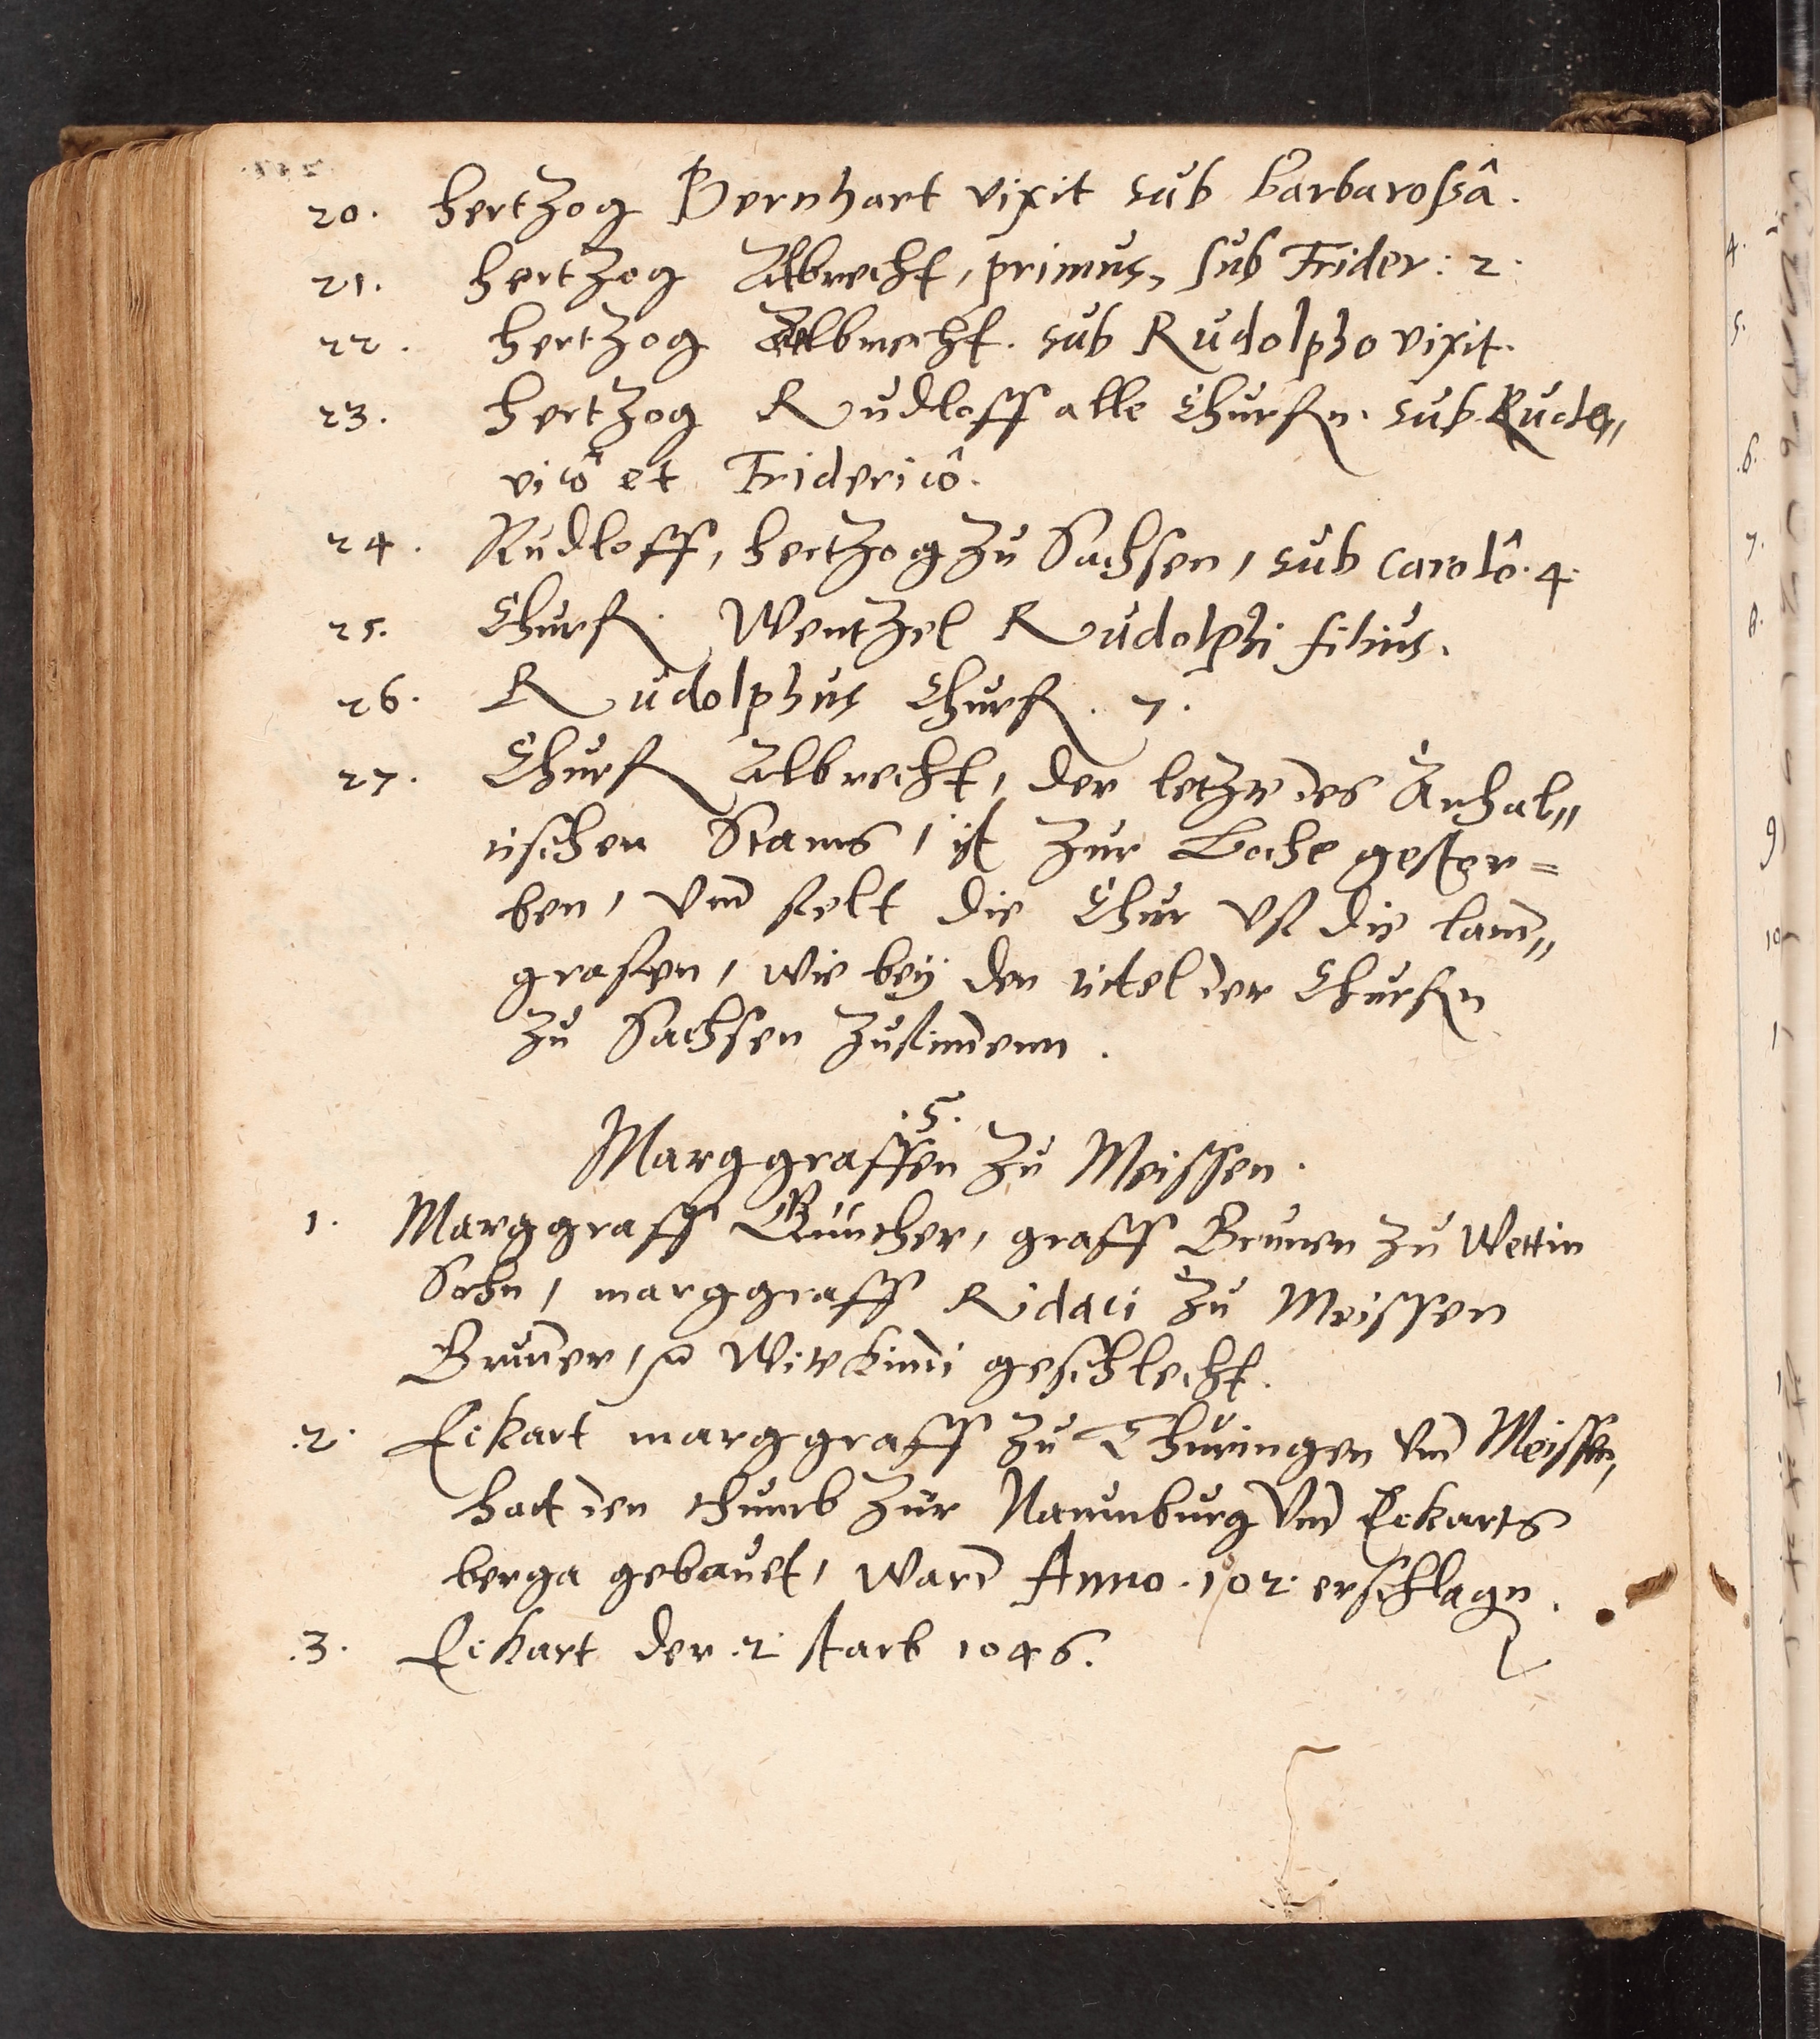 20. hertzog Bernhart vixit sub barbarossâ.
21. hertzog Albrecht, primus, sub Frider: 2.
22. hertzog Albrecht. sub Rudolpho vixit.
23. hertzog Rudloff alle Churfn. sub Ludo„
vicô et Fridericô.
24. Rudloff, hertzog zu Sachsen, sub carolô. 4.
25. Churf. Wentzel Rudolphi filius.
26. Rudolphus Churf. 7.
27. Churf Albrecht, der letzte des Anhal„
tischen Stams, ist zur Loche gestor=
ben, vnd felt die Chur vf die land„
grafen, wie beÿ den titel der Churfn
zu Sachsen zufindenn.
.5.
Marggraffen zu Meissen.
1. Marggraff Günther, graff Brunen zu Wettin
Sohn, marggraff Ridaci zu Meissen
Bruder, Witekindi geschlecht.
.2. Eckart marggraff zu Thuringen vnd Meissen,
hatt den thumb zur Naumburg vnd Eckarts
berga gebauet, ward Anno. 102. erschlagn.
.3. Eckart der .2. starb 1046.